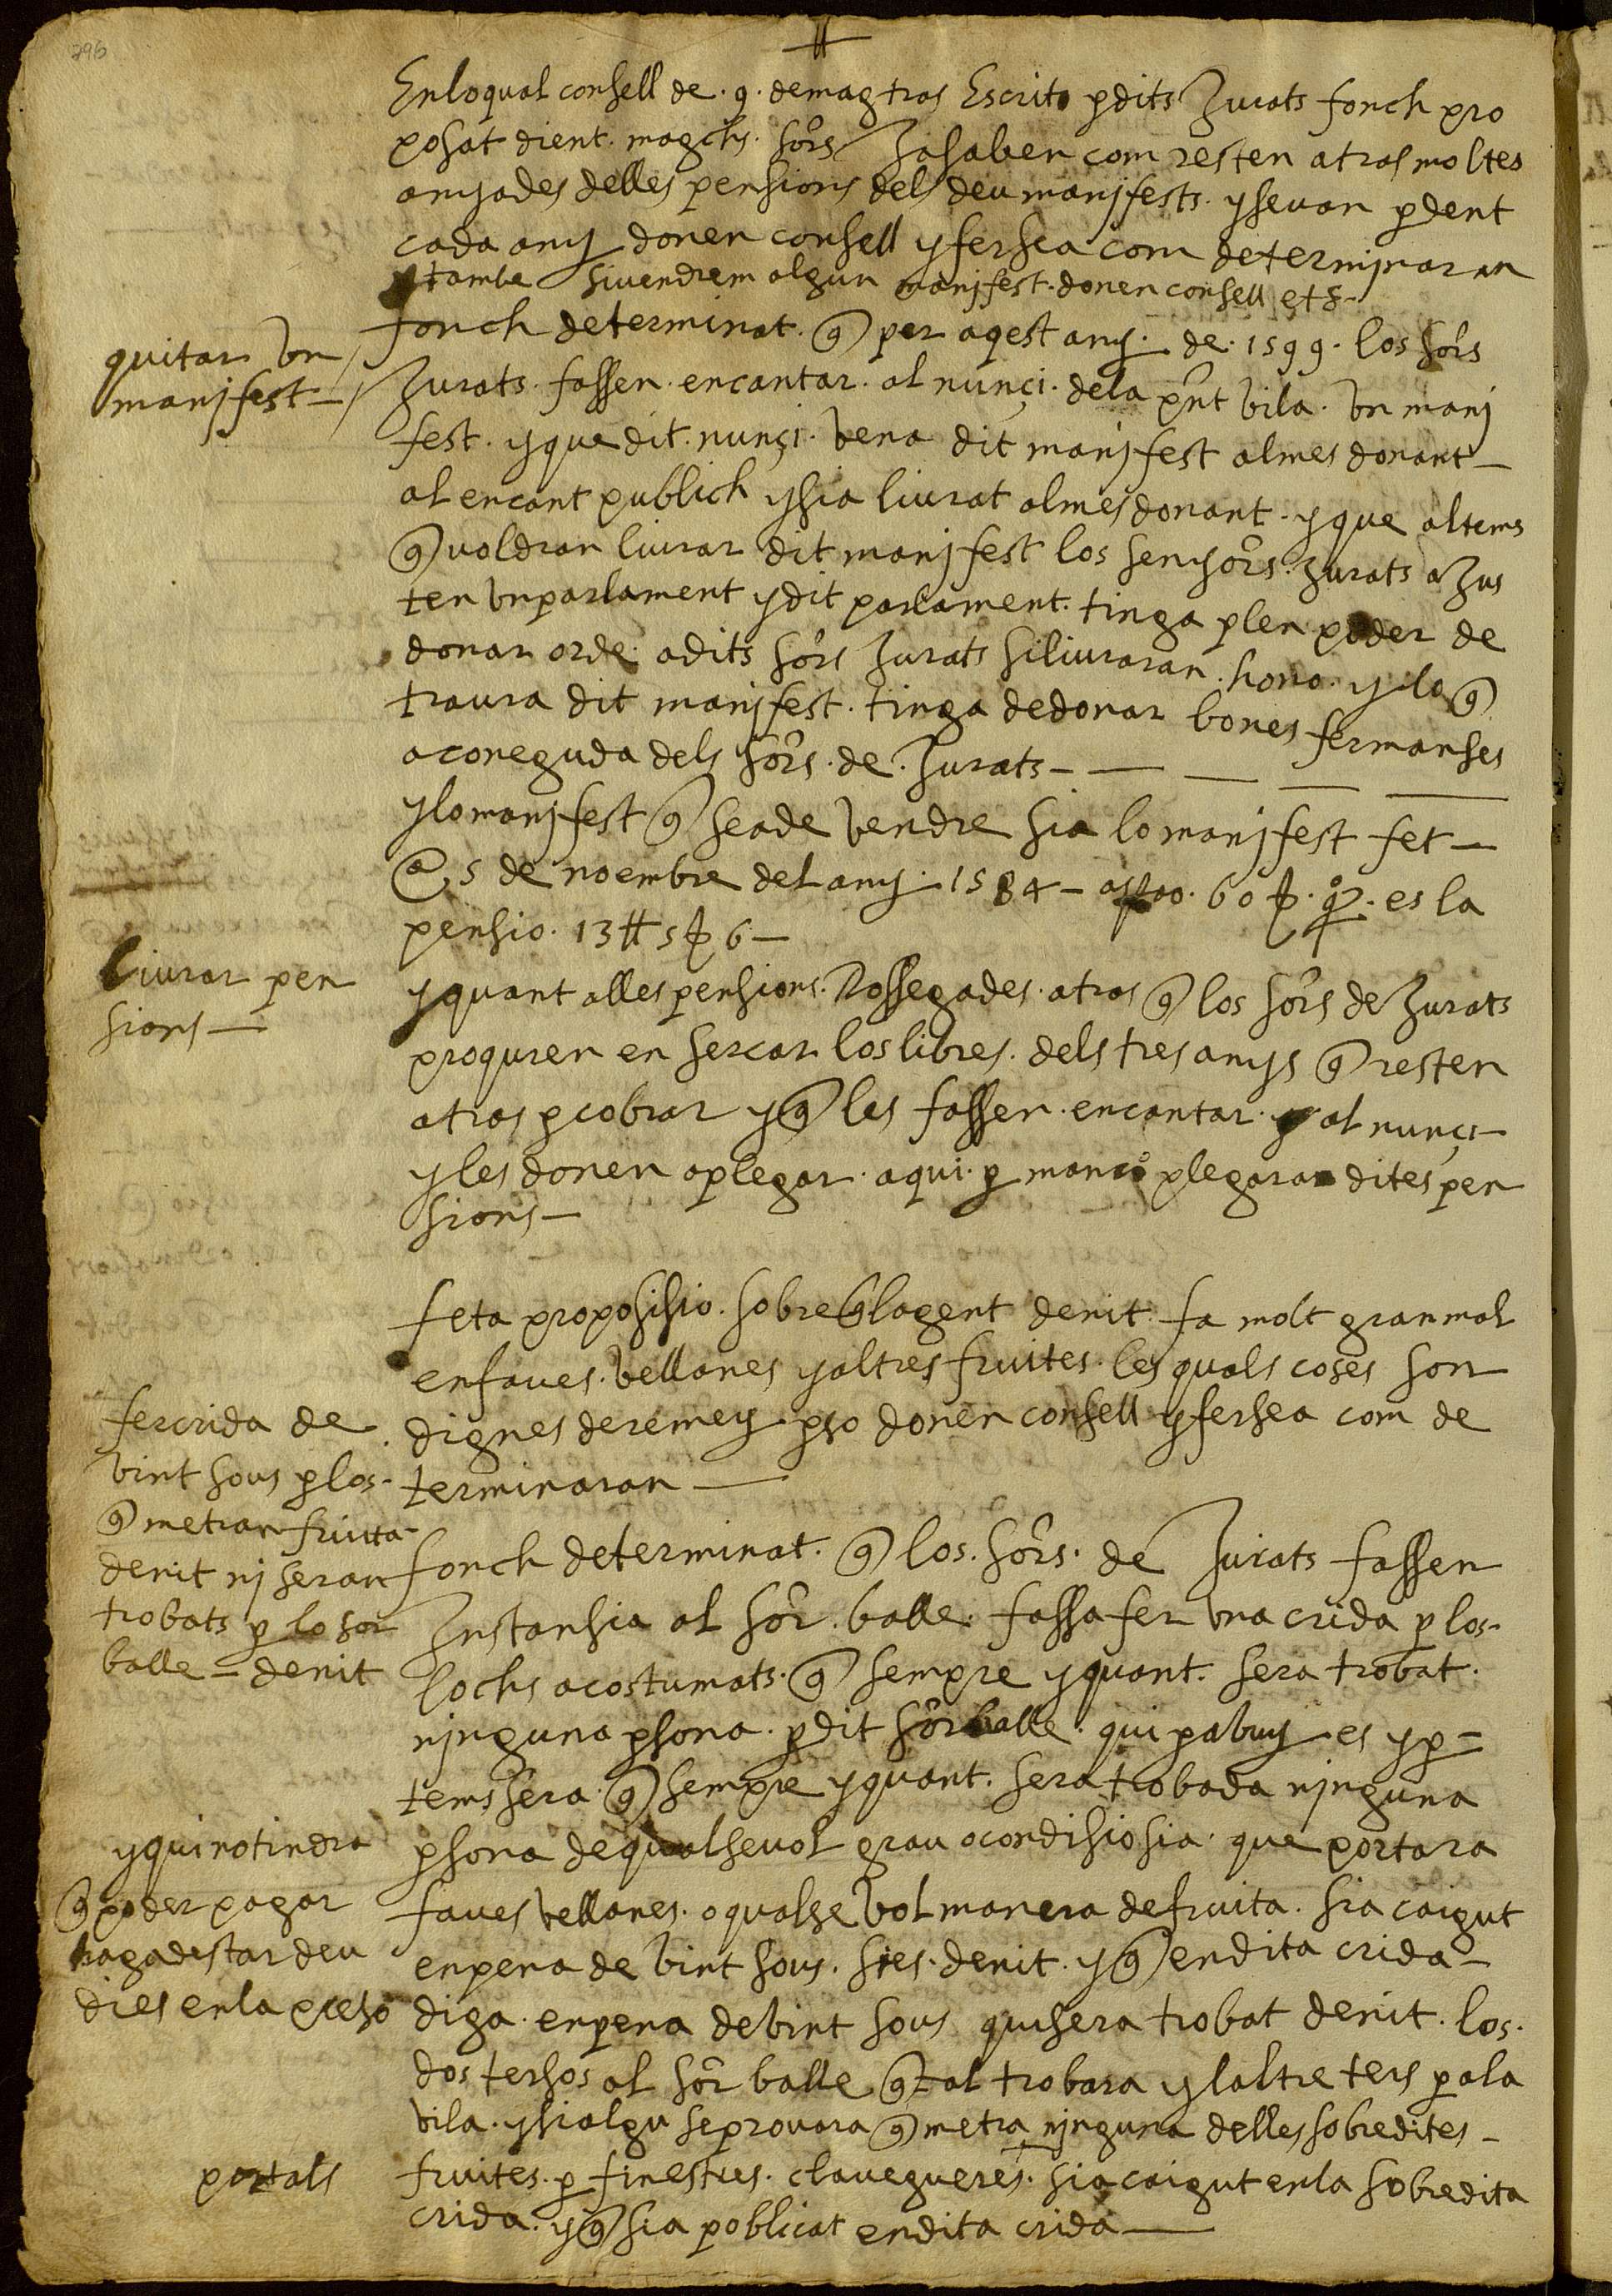 296
Enloqual consell de . 9 . demag tras Escrits pdits Jurats fonch pro
posat dient . magchs . sors Jasaben com resten atras moltes
anyades delles pensions dels deu manjfests . ysevan pdent
cada any donen consell yfersea com determjnaran
ytambe sivendrem algun manjfest . donen consell etz -
fonch determinat . q per aqest any . de . 1599 . los sors
quitar vn
manjfest -
Jurats . fassen . encantar . al nunçi . dela pnt vila . vn manj
fest . yque dit . nunçi . vena dit manjfest almes donant -
al encant publich ysia liurat almes donant . yque altems
q voldran liurar dit manjfest los senyors . Jurats aJus
ten vnparlament ydit parlament . tinga plen poder de
donar orde adits sors Jurats siliuraran . hono . ylo q
traura dit manjfest . tinga dedonar bones fermanses
aconeguda dels sors . de . Jurats -
ylomanjfest q seade vendre sia lo manjfest fet -
a 5 de noembre del any . 1584 - . es la
pensio . 13 ⁋ s 6 -
Liurar pen
sions -
yquant alles pensions . Rossegades . atras q los sors de Jurats
proquren en sercar los libres . dels tres anys q resten
atras pcobrar yq les fassen . encantar . al nunçi -
yles donen aplegar . aqui . p manco plegaran dites pen
sions -
feta proposisio . sobre q lagent denit . fa molt granmal
enfaves . vellanes yaltres fruites . les quals coses son
dignes deremey . pso donen consell yfersea com de
terminaran -
fercrida de
vint sous plos -
q metran fruita -
denit nj seran
trobats p lo sor
balle = denit
fonch determinat . q los . sors . de Jurats fassen
Jnstansia al sor . balle . fassa fer vna crida p los -
lochs acostumats . q sempre yquant . sera trobat .
njnguna psona . pdit sor balle . qui pabuy es yp =
tems sera . q sempre yquant . sera trobada njnguna
psona dequalsevol grau ocondisiosia . que portara
faves vellanes . oqualsevol manera defruita . sia caigut
enpena de vint sous . sies . denit . yq endita crida -
diga . enpena devint sous quisera trobat denit . los .
dos tersos al sor balle q tal trobara ylaltre ters pala
vila . ysialgu seprovara q metra njnguna delles sobredites -
fruites . p finestres . clavegueres . sia caigut enla sobredita
crida . yq sia poblicat endita crida -
yquinotindra
q poder pagar
hagadestar deu
dies enla preso
portals